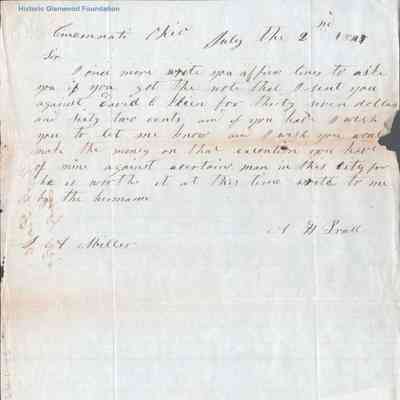 Historic Glenwood Foundation
Cincinnati Ohio July the 2
Sir
I once more wrote you a few lines to ask
you if you got the note that I sent you
against David C for thirty seven dollars
and sixty two cents and if you had I wish
you to let me know and I wish you would
make the money on that execution you have
of mine against a certain man in this city for
he is worth it at this time write to me
by the
A
Miller